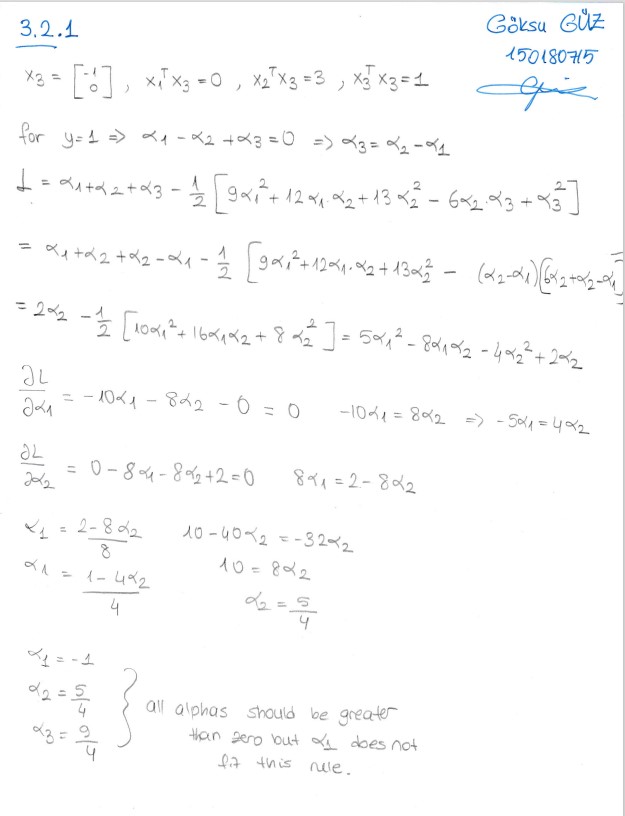 3.2.1
Göksu GÜZ
150180715
x₃ = [-1 0], x₁ᵀx₃ = 0, x₂ᵀx₃ = 3, x₃ᵀx₃ = 1
for y=1 => α₁ - α₂ + α₃ = 0 => α₃ = α₂ - α₁
L = α₁ + α₂ + α₃ - 1/2 [9α₁² + 12α₁.α₂ + 13α₂² - 6α₂.α₃ + α₃²]
= α₁ + α₂ + α₂ - α₁ - 1/2 [9α₁² + 12α₁.α₂ + 13α₂² - (α₂-α₁)(6α₂+α₂-α₁)]
= 2α₂ - 1/2 [10α₁² + 16α₁α₂ + 8α₂²] = 5α₁² - 8α₁α₂ - 4α₂² + 2α₂
∂L/∂α₁ = -10α₁ - 8α₂ - 0 = 0 -10α₁ = 8α₂ => -5α₁ = 4α₂
∂L/∂α₂ = 0 - 8α₁ - 8α₂ + 2 = 0 8α₁ = 2 - 8α₂
α₁ = 2-8α₂/8 10 - 40α₂ = -32α₂
α₁ = 1-4α₂/4 10 = 8α₂
α₂ = 5/4
α₁ = -1
α₂ = 5/4
α₃ = 9/4
all alphas should be greater
than zero but α₁ does not
fit this rule.